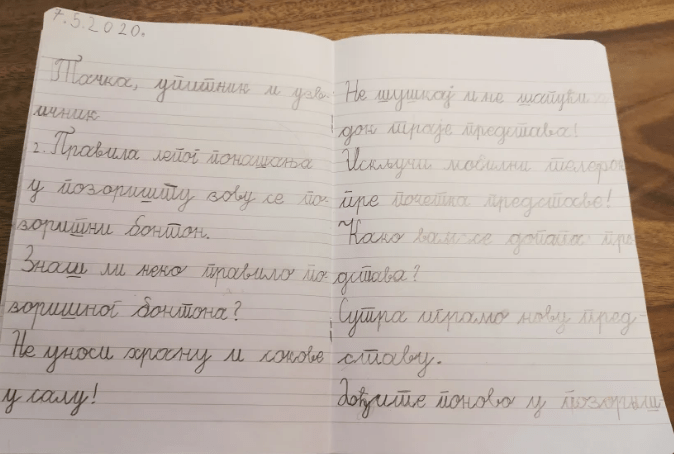 7.5.2020.
Тачка, упитник и узви-
ичник
2. Правила лепог понашања
у позоришту зову се по-
зоришни бонтон.
Знаш ли неко правило по-
зоришног бонтона?
Не уноси храну и сокове
у салу!
Не шушкај и не шапући
док траје представа!
Искључи мобилни телефон
пре почетка представе!
Како вам се допала пре-
дстава?
Сутра играмо нову пред-
ставу.
Дођите поново у позориш-